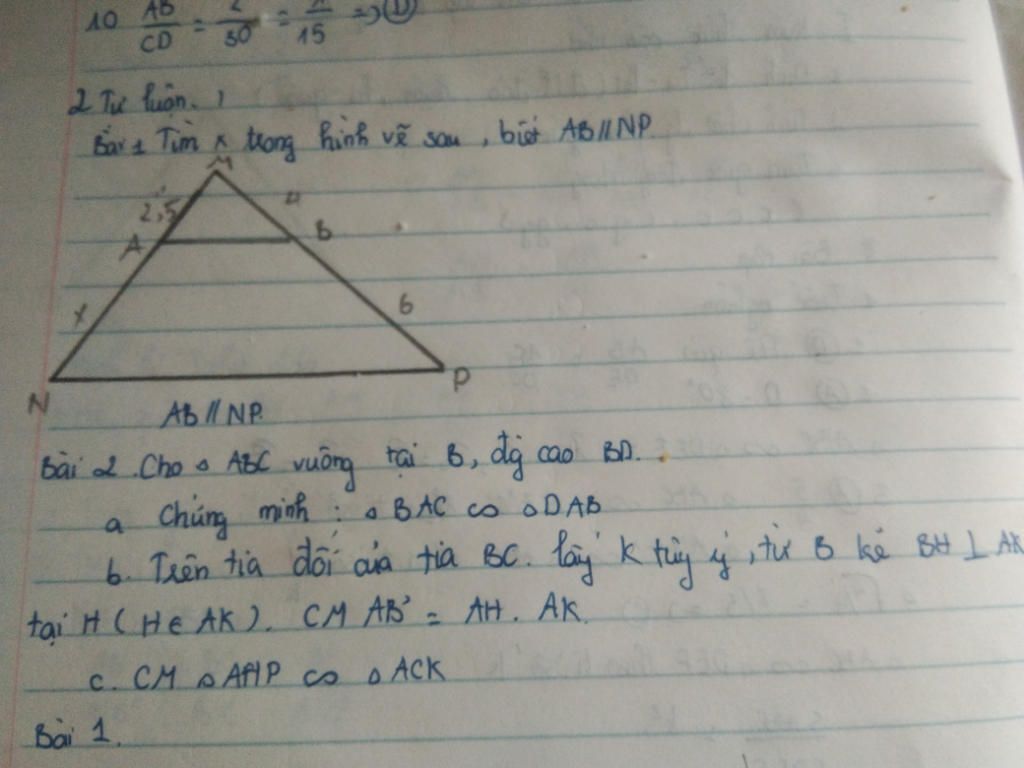 10 AB/CD = /30 = /15 => D
2 Tự luận.
Bài 1 Tìm x trong hình vẽ sau, biết AB // NP.
M
2,5
A B
x 6
N P
AB // NP.
Bài 2. Cho △ ABC vuông tại B, đg cao BD.
a Chứng minh : △ BAC ∽ △ DAB
b. Trên tia đối của tia BC. lấy K tùy ý, từ B kẻ BH ⊥ AK
tại H ( H ∈ AK ). CM AB² = AH . AK.
c. CM △ AHD ∽ △ ACK
Bài 1.